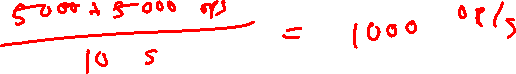 5000 + 5000 ops
10 s = 1000 op/s